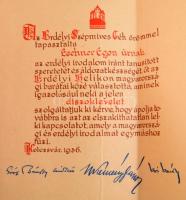 Az Erdélyi Szépmíves Céh örömmel
tapasztalta
Lechner Egon úrnak
az erdélyi irodalom iránt tanúsított
szeretetét és áldozatkészségét, őt az
Erdélyi Helikon magyaror-
szági barátai közé választotta, aminek
igazolásául neki a jelen
díszoklevelet
szolgáltatjuk ki kérve, hogy ápolja to-
vábbra is azt az elszakíthatatlan lel-
ki kapcsolatot, amely a magyarországi
és erdélyi irodalmat egymáshoz
fűzi.
Kolozsvár, 1936.